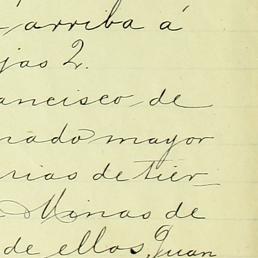 arriba á
jas 2.
ancisco de
nado mayor
rias de tier_
Minas de
de ellos, Juan